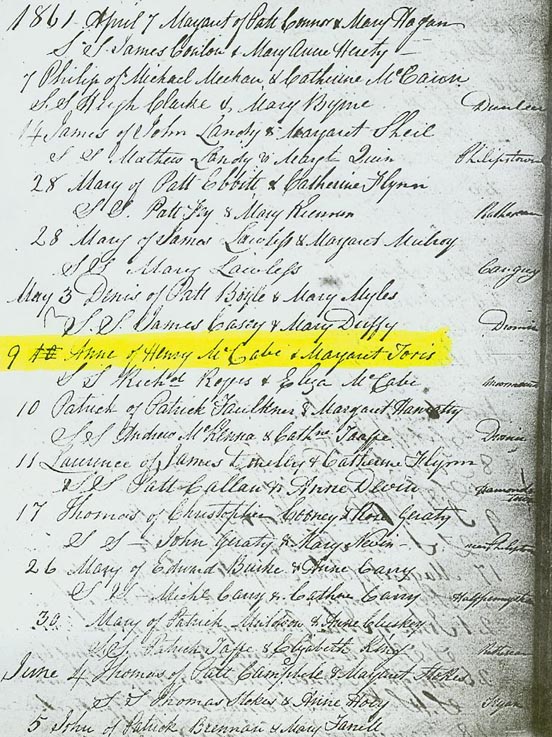 1861 April 7 Margaret of Patt Connor & Mary Hagan
S S James Conlon & Mary Anne
7 Philip of Michael Meehan & Catherine McCann
S.S Hugh Clarke & Mary Byrne Dunleer
14 James of John Landy & Margaret Sheil
S S Mathew Landy & Margt Quin Philipstown
28 Mary of Patt Ebbitt & Catherine Flynn
S S. Patt & Mary Keenan
28 Mary of James Lawless & Margaret Mulroy
S S Mary Lawless
May 3 Denis of Patt Boyle & Mary Myles
S. S. James Casey & Mary Duffy
9 Anne of Henry McCabe & Margaret Toris
S S Richd & Eliza McCabe
10 Patrick of Patrick Faulkner & Margaret
S S Andrew McKenna & Cathne Taaffe
11 Laurence of James & Catherine Flynn
S S Patt Callan & Anne Devin
17 Thomas of Christopher Cooney & Geraty
S S John Geraty & Mary
26 Mary of Edward Burke & Anne Carry
S S Michl Carry & Cathne Carry
30 Mary of Patrick & Anne Cluskey
S S Patrick Taffe & Elizabeth King
June 4 Thomas of Patt Campbell & Margaret Stokes
S S Thomas Stokes & Anne Hoey
5 John of Patrick Brennan & Mary